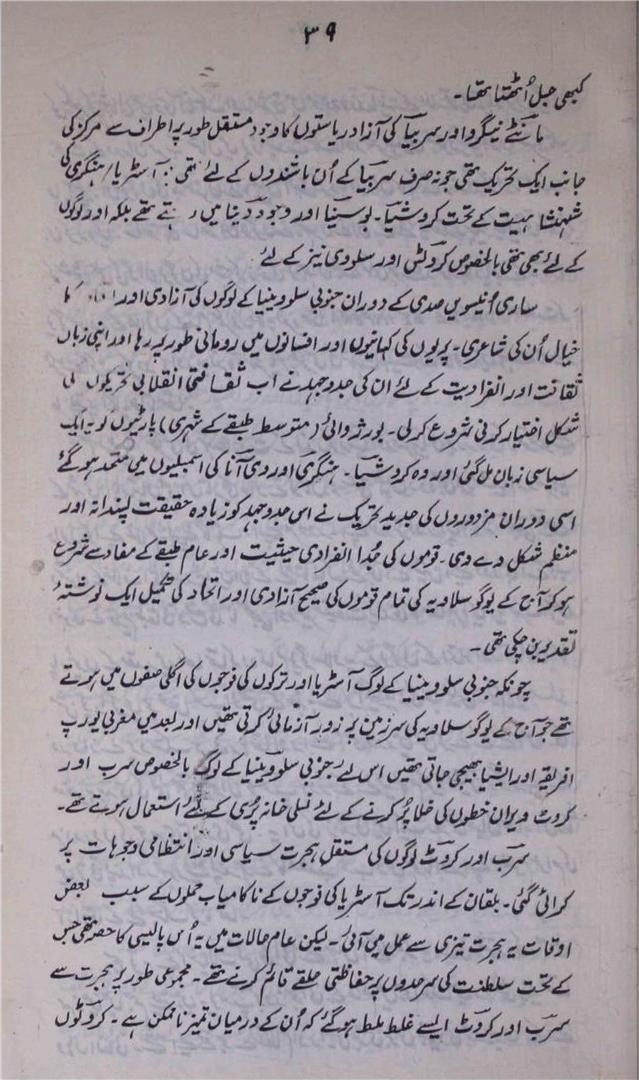 ۳۹
کبھی جل اُٹھتا تھا۔
مانٹے نیگرو اور سربیا کی آزاد ریاستوں کا وجود مستقل طور پر اطراف سے مرکز کی
جانب ایک تحریک تھی جو نہ صرف سربیا کے اُن باشندوں کے لئے تھی آسٹریا/ہنگری کی
شہنشاہیت کے تحت کروشیا۔ بوسنیا اور وجود دینا میں رہتے تھے بلکہ اور لوگوں
کے لئے بھی تھی بالخصوص کروٹس اور سلووی نیز کے لئے
ساری اُنیسویں صدی کے دوران جنوبی سلووینیا کے لوگوں کی آزادی اور کا
خیال اُن کی شاعری۔ پریوں کی کہانیوں اور افسانوں میں رومانی طور پر رہا اور اپنی زبان
ثقافت اور انفرادیت کے لئے ان کی جدوجہد نے اب ثقافتی انقلابی تحریکوں کی
شکل اختیار کرنی شروع کر لی۔ بورژوائی (متوسط طبقے کے شہری) پارٹیوں کو یہ ایک
سیاسی زبان مل گئی اور وہ کروشیا۔ ہنگری اور وی آنا کی اسمبلیوں میں متحد ہو گئے
اسی دوران مزدوروں کی جدید تحریک نے اس جدوجہد کو زیادہ حقیقت پسندانہ اور
منظم شکل دے دی۔ قوموں کی جُدا انفرادی حیثیت اور عام طبقے کے مفاد سے شروع
ہو کر آج کے یوگوسلاویہ کی تمام قوموں کی صحیح آزادی اور اتحاد کی تکمیل ایک نوشتۂ
تقدیر بن چکی تھی۔
چونکہ جنوبی سلووینیا کے لوگ آسٹریا اور ترکوں کی فوجوں کی اگلی صفوں میں ہوتے
تھے جو آج کے یوگوسلاویہ کی سرزمین پر زور آزمائی کرتی تھیں اور بعد میں مغربی یورپ
افریقہ اور ایشیا بھیجی جاتی تھیں اس لئے جنوبی سلووینیا کے لوگ بالخصوص سرب اور
کروٹ ویران خطوں کی خلا پُر کرنے کے لئے نسلی خانہ پُری کے لئے استعمال ہوتے تھے۔
سرب اور کروٹ لوگوں کی مستقل ہجرت سیاسی اور انتظامی وجوہات پر
کرائی گئی۔ بلقان کے اندر تک آسٹریا کی فوجوں کے ناکامیاب حملوں کے سبب بعض
اوقات یہ ہجرت تیزی سے عمل میں آئی۔ لیکن عام حالات میں یہ اُس پالیسی کا حصہ تھی جس
کے تحت سلطنت کی سرحدوں پر حفاظتی حلقے قائم کرنے تھے۔ مجموعی طور پر ہجرت سے
سرب اور کروٹ ایسے غلط ملط ہو گئے کہ اُن کے درمیان تمیز ناممکن ہے۔ کروٹوں